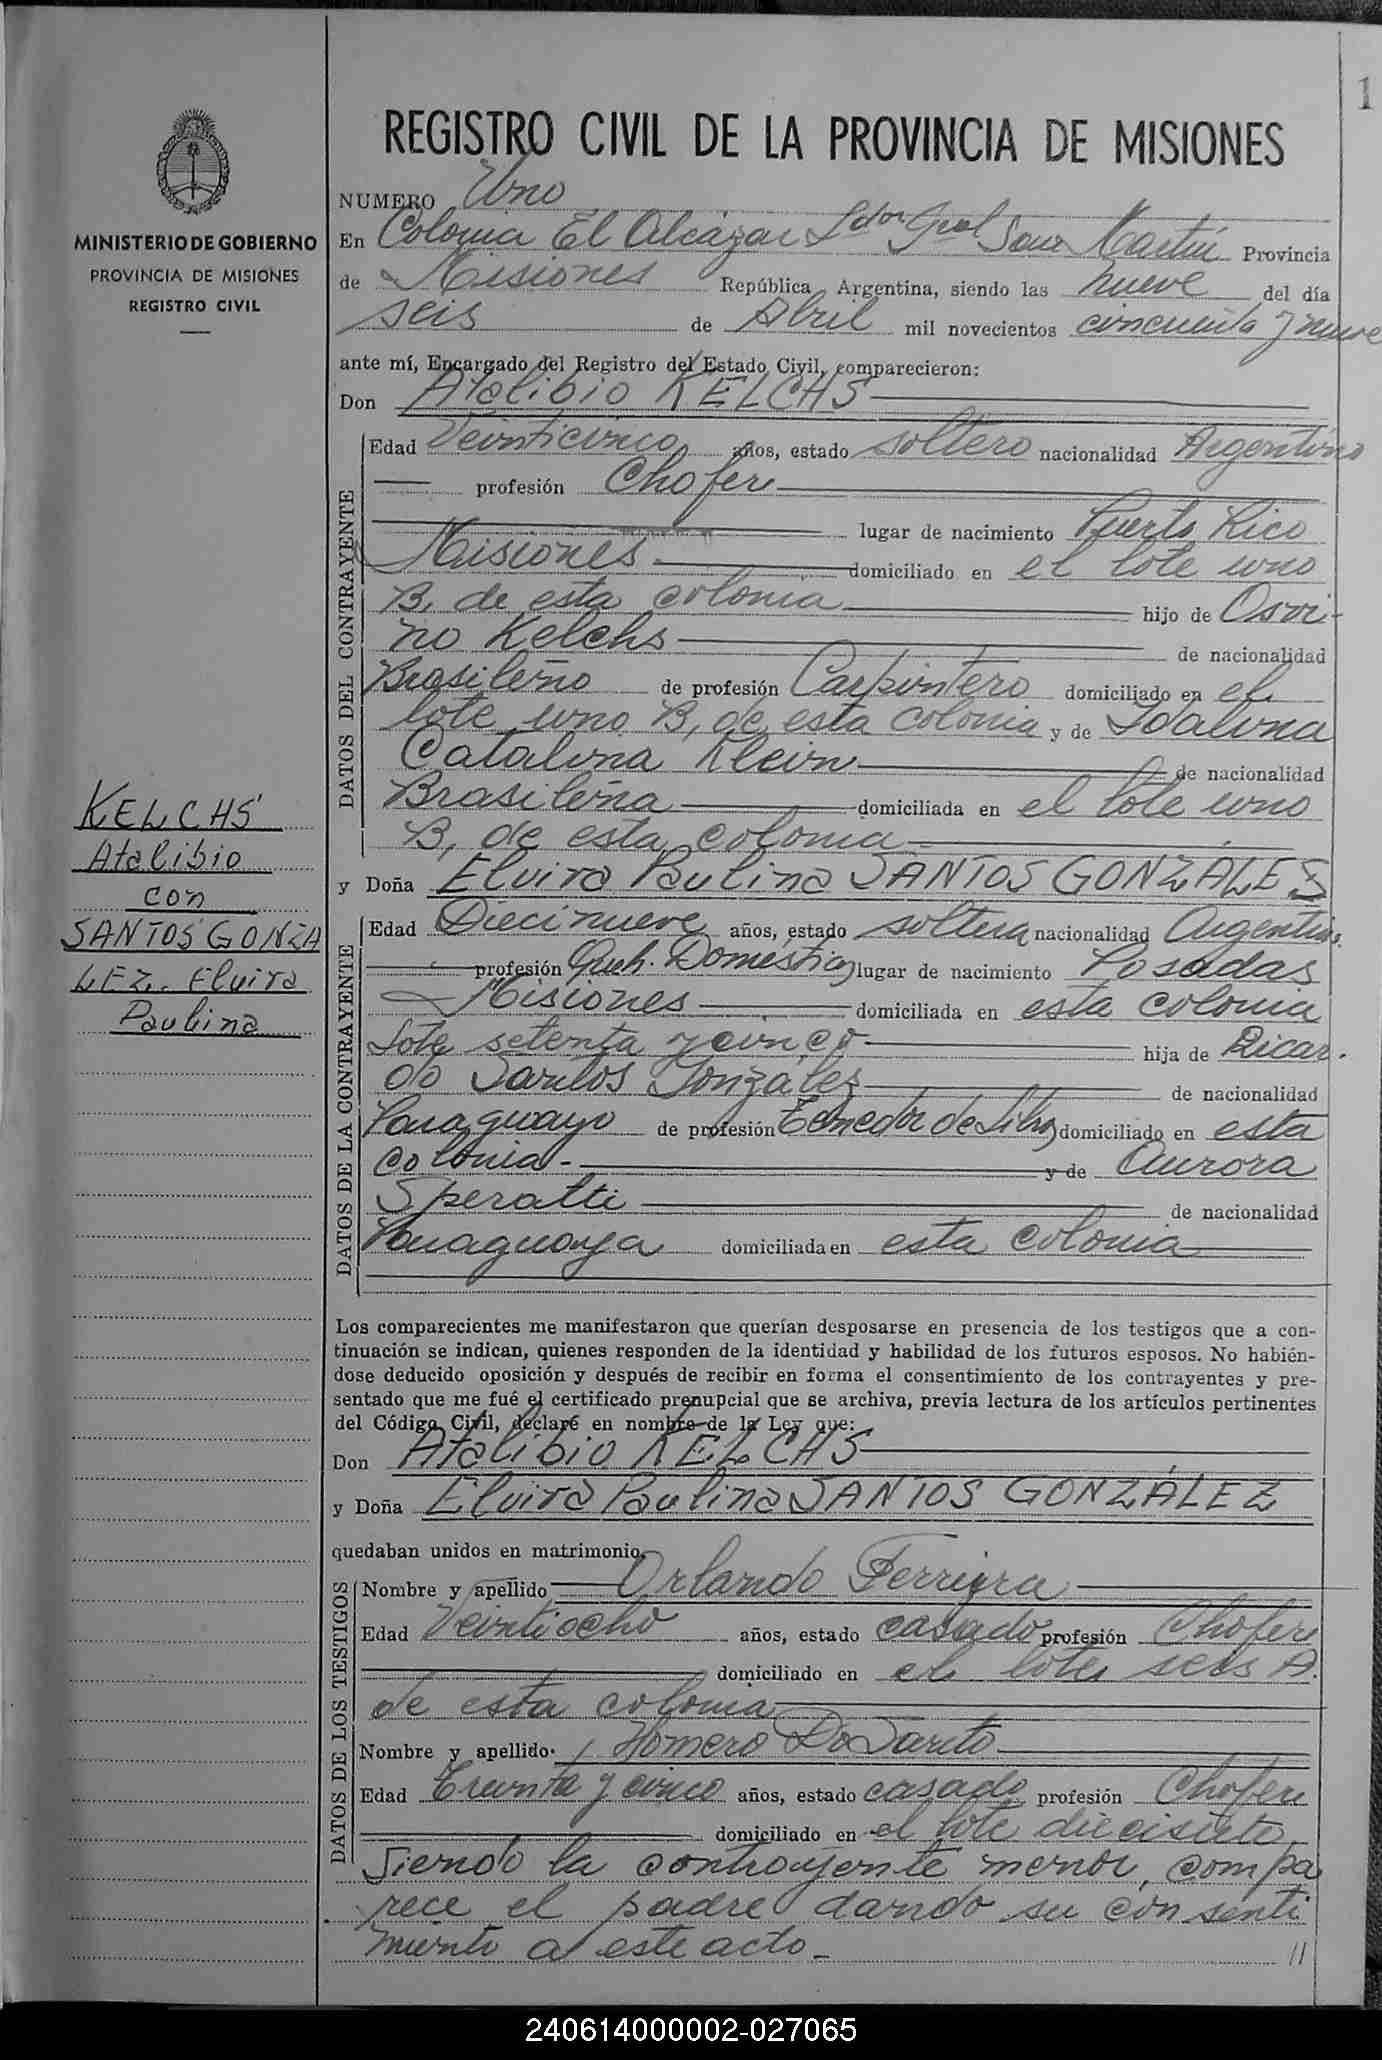 1
REGISTRO CIVIL DE LA PROVINCIA DE MISIONES
MINISTERIO DE GOBIERNO
PROVINCIA DE MISIONES
REGISTRO CIVIL
NUMERO Uno
En Colonia El Alcázar Ldor Gral San Martín Provincia
de Misiones República Argentina, siendo las nueve del día
seis de Abril mil novecientos cincuenta y nueve
ante mí, Encargado del Registro del Estado Civil, comparecieron:
Don Atalibio KELCHS
DATOS DEL CONTRAYENTE
Edad Veinticinco años, estado soltero nacionalidad Argentino
profesión Chofer
lugar de nacimiento Puerto Rico
Misiones domiciliado en el lote uno
B, de esta colonia hijo de Osvi-
no Kelchs de nacionalidad
Brasileño de profesión Carpintero domiciliado en el
lote uno B, de esta colonia y de Idalina
Catalina Klein de nacionalidad
Brasileña domiciliada en el lote uno
B, de esta colonia
KELCHS
Atalibio
con
SANTOS GONZA
LEZ. Elvira
Paulina
y Doña Elvira Paulina SANTOS GONZÁLES
DATOS DE LA CONTRAYENTE
Edad Diecinueve años, estado soltera nacionalidad Argentina
profesión Queh. Domésticos lugar de nacimiento Posadas
Misiones domiciliada en esta colonia
Lote setenta y cinco hija de Ricar-
do Santos Gonzalez de nacionalidad
Paraguayo de profesión Tenedor de Libros domiciliado en esta
colonia.- y de Aurora
Speratti de nacionalidad
Paraguaya domiciliada en esta colonia
Los comparecientes me manifestaron que querían desposarse en presencia de los testigos que a con-
tinuación se indican, quienes responden de la identidad y habilidad de los futuros esposos. No habién-
dose deducido oposición y después de recibir en forma el consentimiento de los contrayentes y pre-
sentado que me fué el certificado prenupcial que se archiva, previa lectura de los artículos pertinentes
del Código Civil, declaré en nombre de la Ley que:
Don Atalibio KELCHS
y Doña Elvira Paulina SANTOS GONZÁLEZ
quedaban unidos en matrimonio.
DATOS DE LOS TESTIGOS
Nombre y apellido Orlando Ferreyra
Edad Veintiocho años, estado casado profesión Chofer
domiciliado en el lote seis A.
de esta colonia
Nombre y apellido. Homero Do Santo
Edad Treinta y cinco años, estado casado profesión Chofer
domiciliado en el lote diecisiete
Siendo la contrayente menor, compa
rece el padre dando su consenti
miento a este acto.-
240614000002-027065